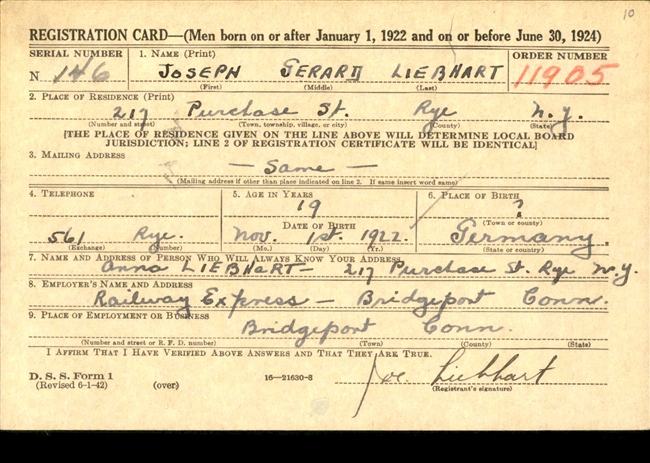 10
REGISTRATION CARD—(Men born on or after January 1, 1922 and on or before June 30, 1924)
SERIAL NUMBER
1. NAME (Print)
ORDER NUMBER
N 146
JOSEPH GERARD LIEBHART
11905
(First) (Middle) (Last)
2. PLACE OF RESIDENCE (Print)
217 Purchase St. Rye N.Y.
(Number and street) (Town, township, village, or city) (County) (State)
[THE PLACE OF RESIDENCE GIVEN ON THE LINE ABOVE WILL DETERMINE LOCAL BOARD
JURISDICTION; LINE 2 OF REGISTRATION CERTIFICATE WILL BE IDENTICAL]
3. MAILING ADDRESS
— Same —
(Mailing address if other than place indicated on line 2. If same insert word same)
4. TELEPHONE
5. AGE IN YEARS
6. PLACE OF BIRTH
19
?
DATE OF BIRTH
(Town or county)
561 Rye.
Nov. 1st. 1922.
Germany.
(Exchange) (Number)
(Mo.) (Day) (Yr.)
(State or country)
7. NAME AND ADDRESS OF PERSON WHO WILL ALWAYS KNOW YOUR ADDRESS
Anna LIEBHART — 217 Purchase St. Rye N.Y.
8. EMPLOYER'S NAME AND ADDRESS
Railway Express — Bridgeport Conn.
9. PLACE OF EMPLOYMENT OR BUSINESS
Bridgeport Conn.
(Number and street or R. F. D. number) (Town) (County) (State)
I AFFIRM THAT I HAVE VERIFIED ABOVE ANSWERS AND THAT THEY ARE TRUE.
D. S. S. Form 1
(Revised 6-1-42) (over) 16—21630-8
Joe. Liebhart
(Registrant's signature)